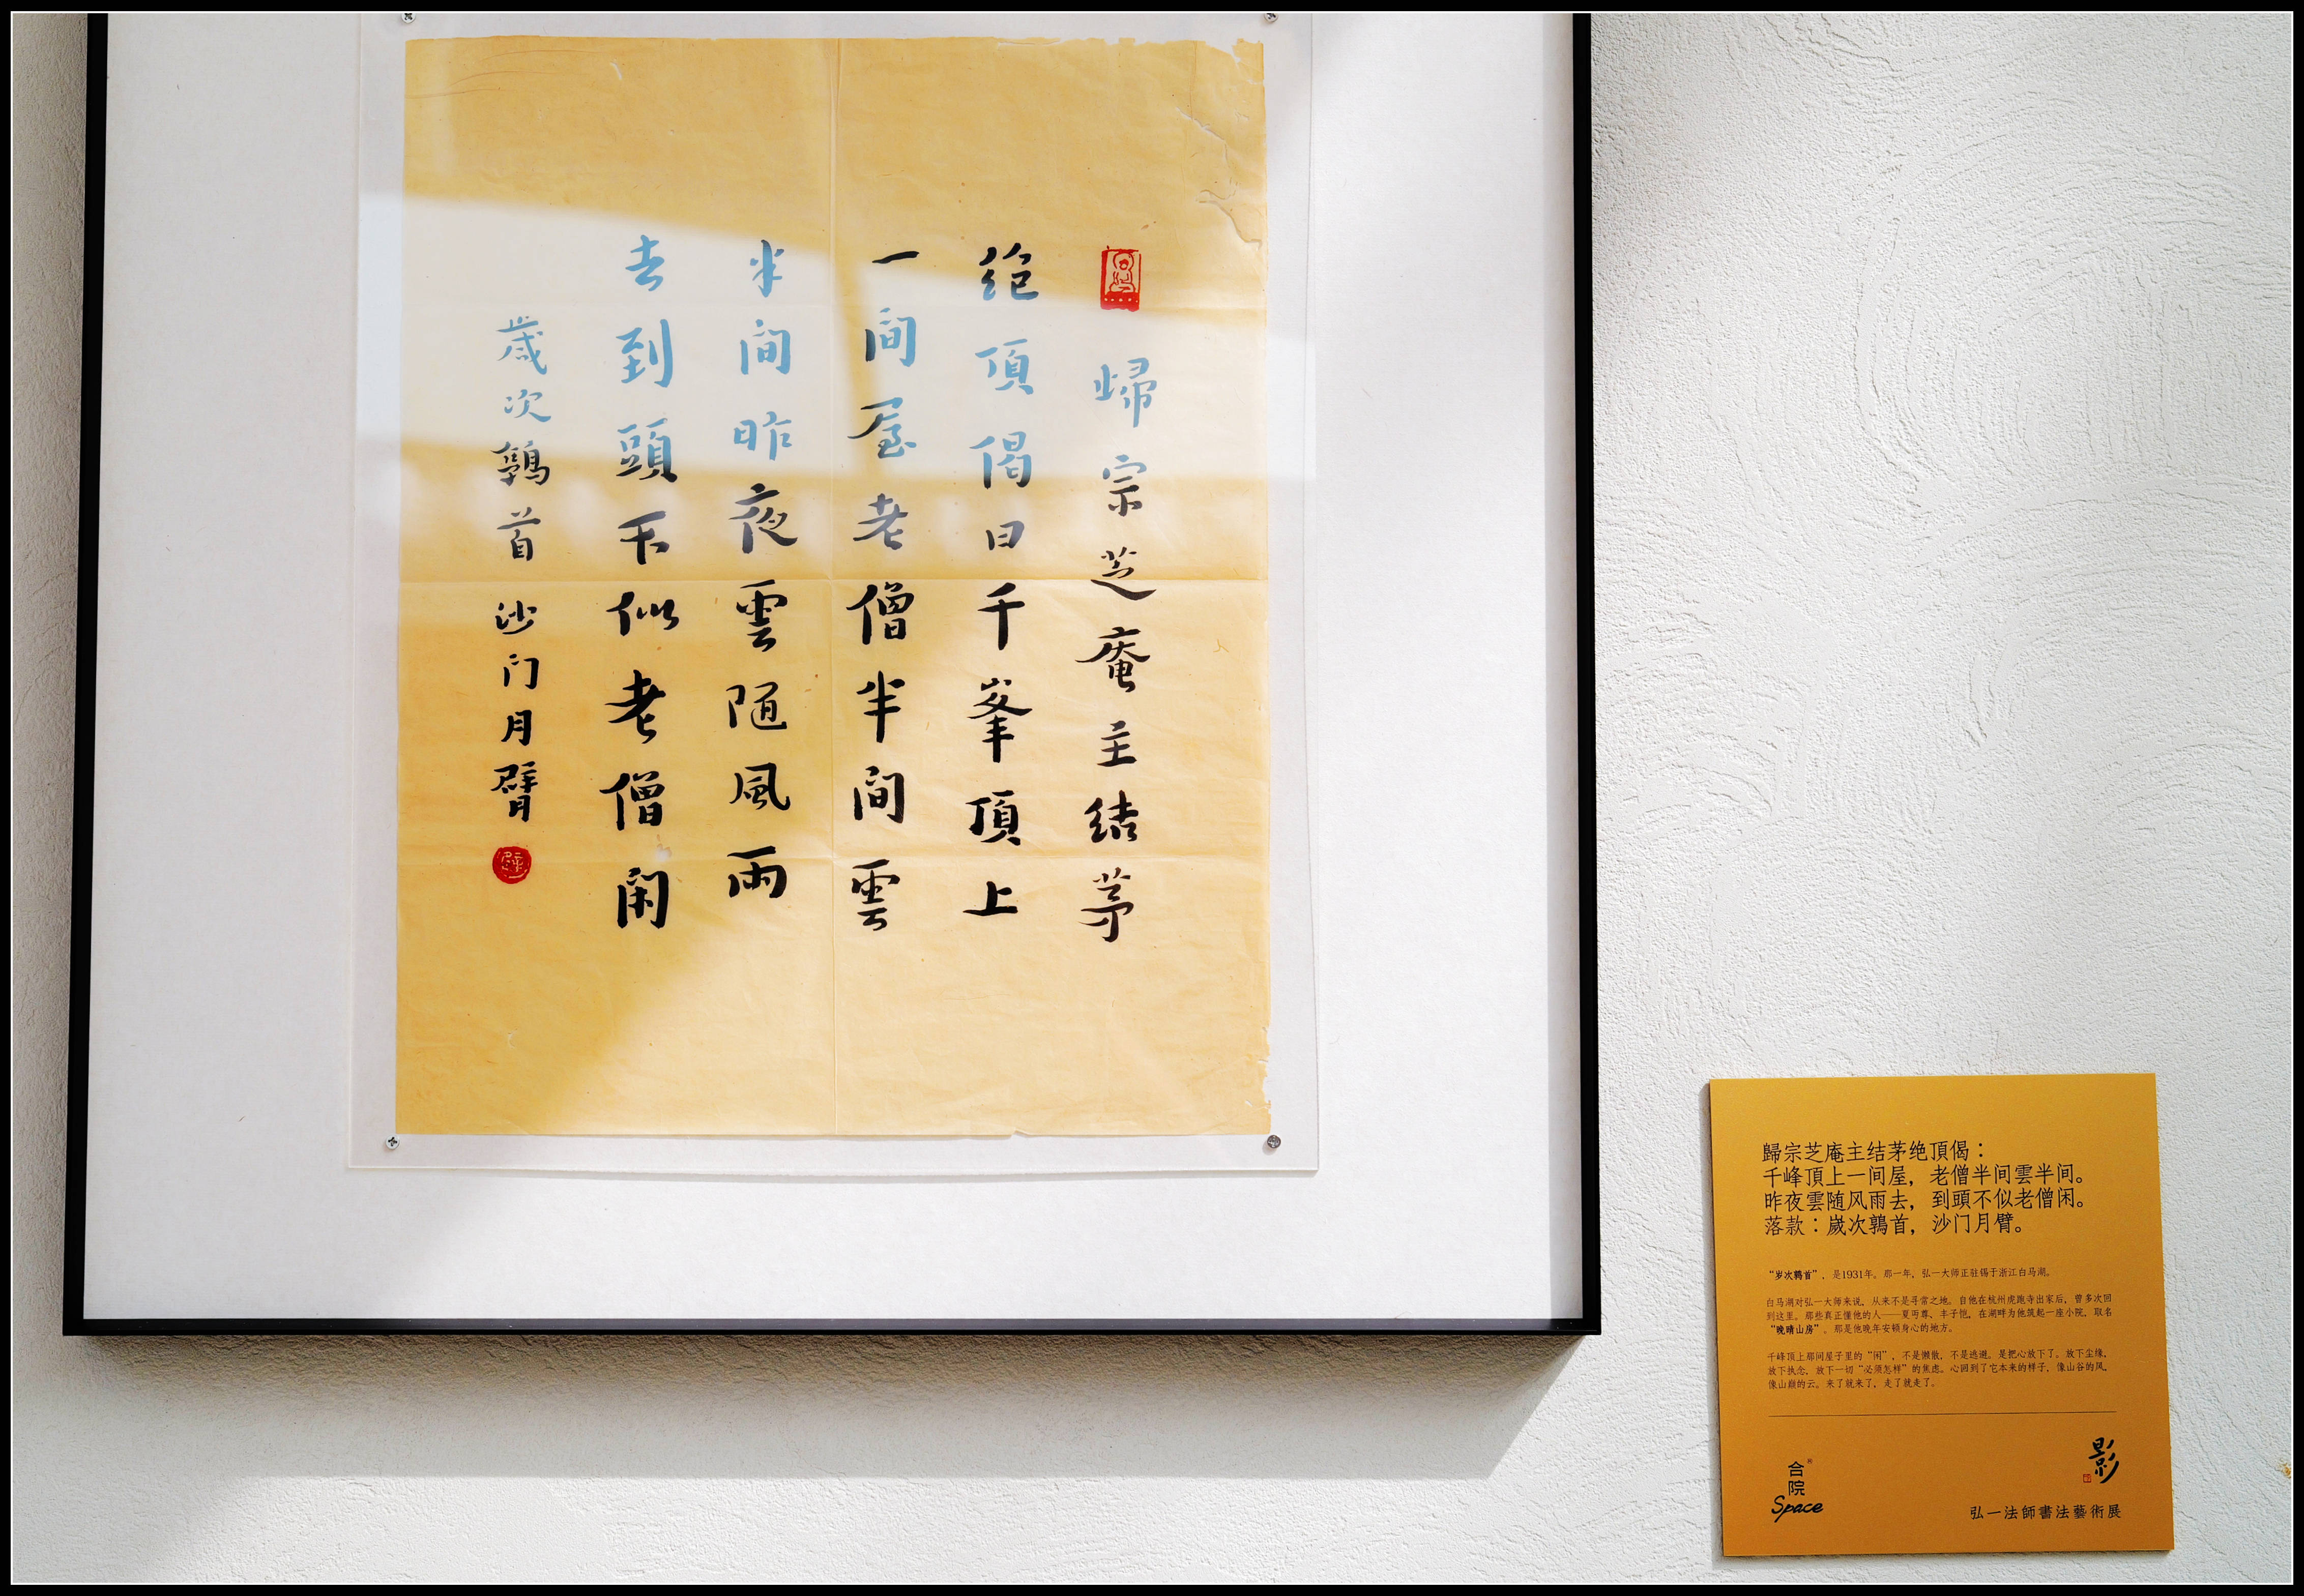 歸宗芝庵主结茅
绝頂偈曰千峯頂上
一间屋老僧半间雲
半间昨夜雲随風雨
去到頭不似老僧闲
歲次鶉首沙门月臂
歸宗芝庵主结茅绝頂偈：
千峰頂上一间屋，老僧半间雲半间。
昨夜雲随风雨去，到頭不似老僧闲。
落款：嵗次鶉首，沙门月臂。
“岁次鹑首”，是1931年。那一年，弘一大师正驻锡于浙江白马湖。
白马湖对弘一大师来说，从来不是寻常之地。自他在杭州虎跑寺出家后，曾多次回
到这里。那些真正懂他的人——夏丏尊、丰子恺，在湖畔为他筑起一座小院，取名
“晚晴山房”。那是他晚年安顿身心的地方。
千峰顶上那间屋子里的“闲”，不是懒散，不是逃避。是把心放下了。放下尘缘，
放下执念，放下一切“必须怎样”的焦虑。心回到了它本来的样子，像山谷的风，
像山巅的云。来了就来了，走了就走了。
合院
Space
影
弘一法師書法藝術展